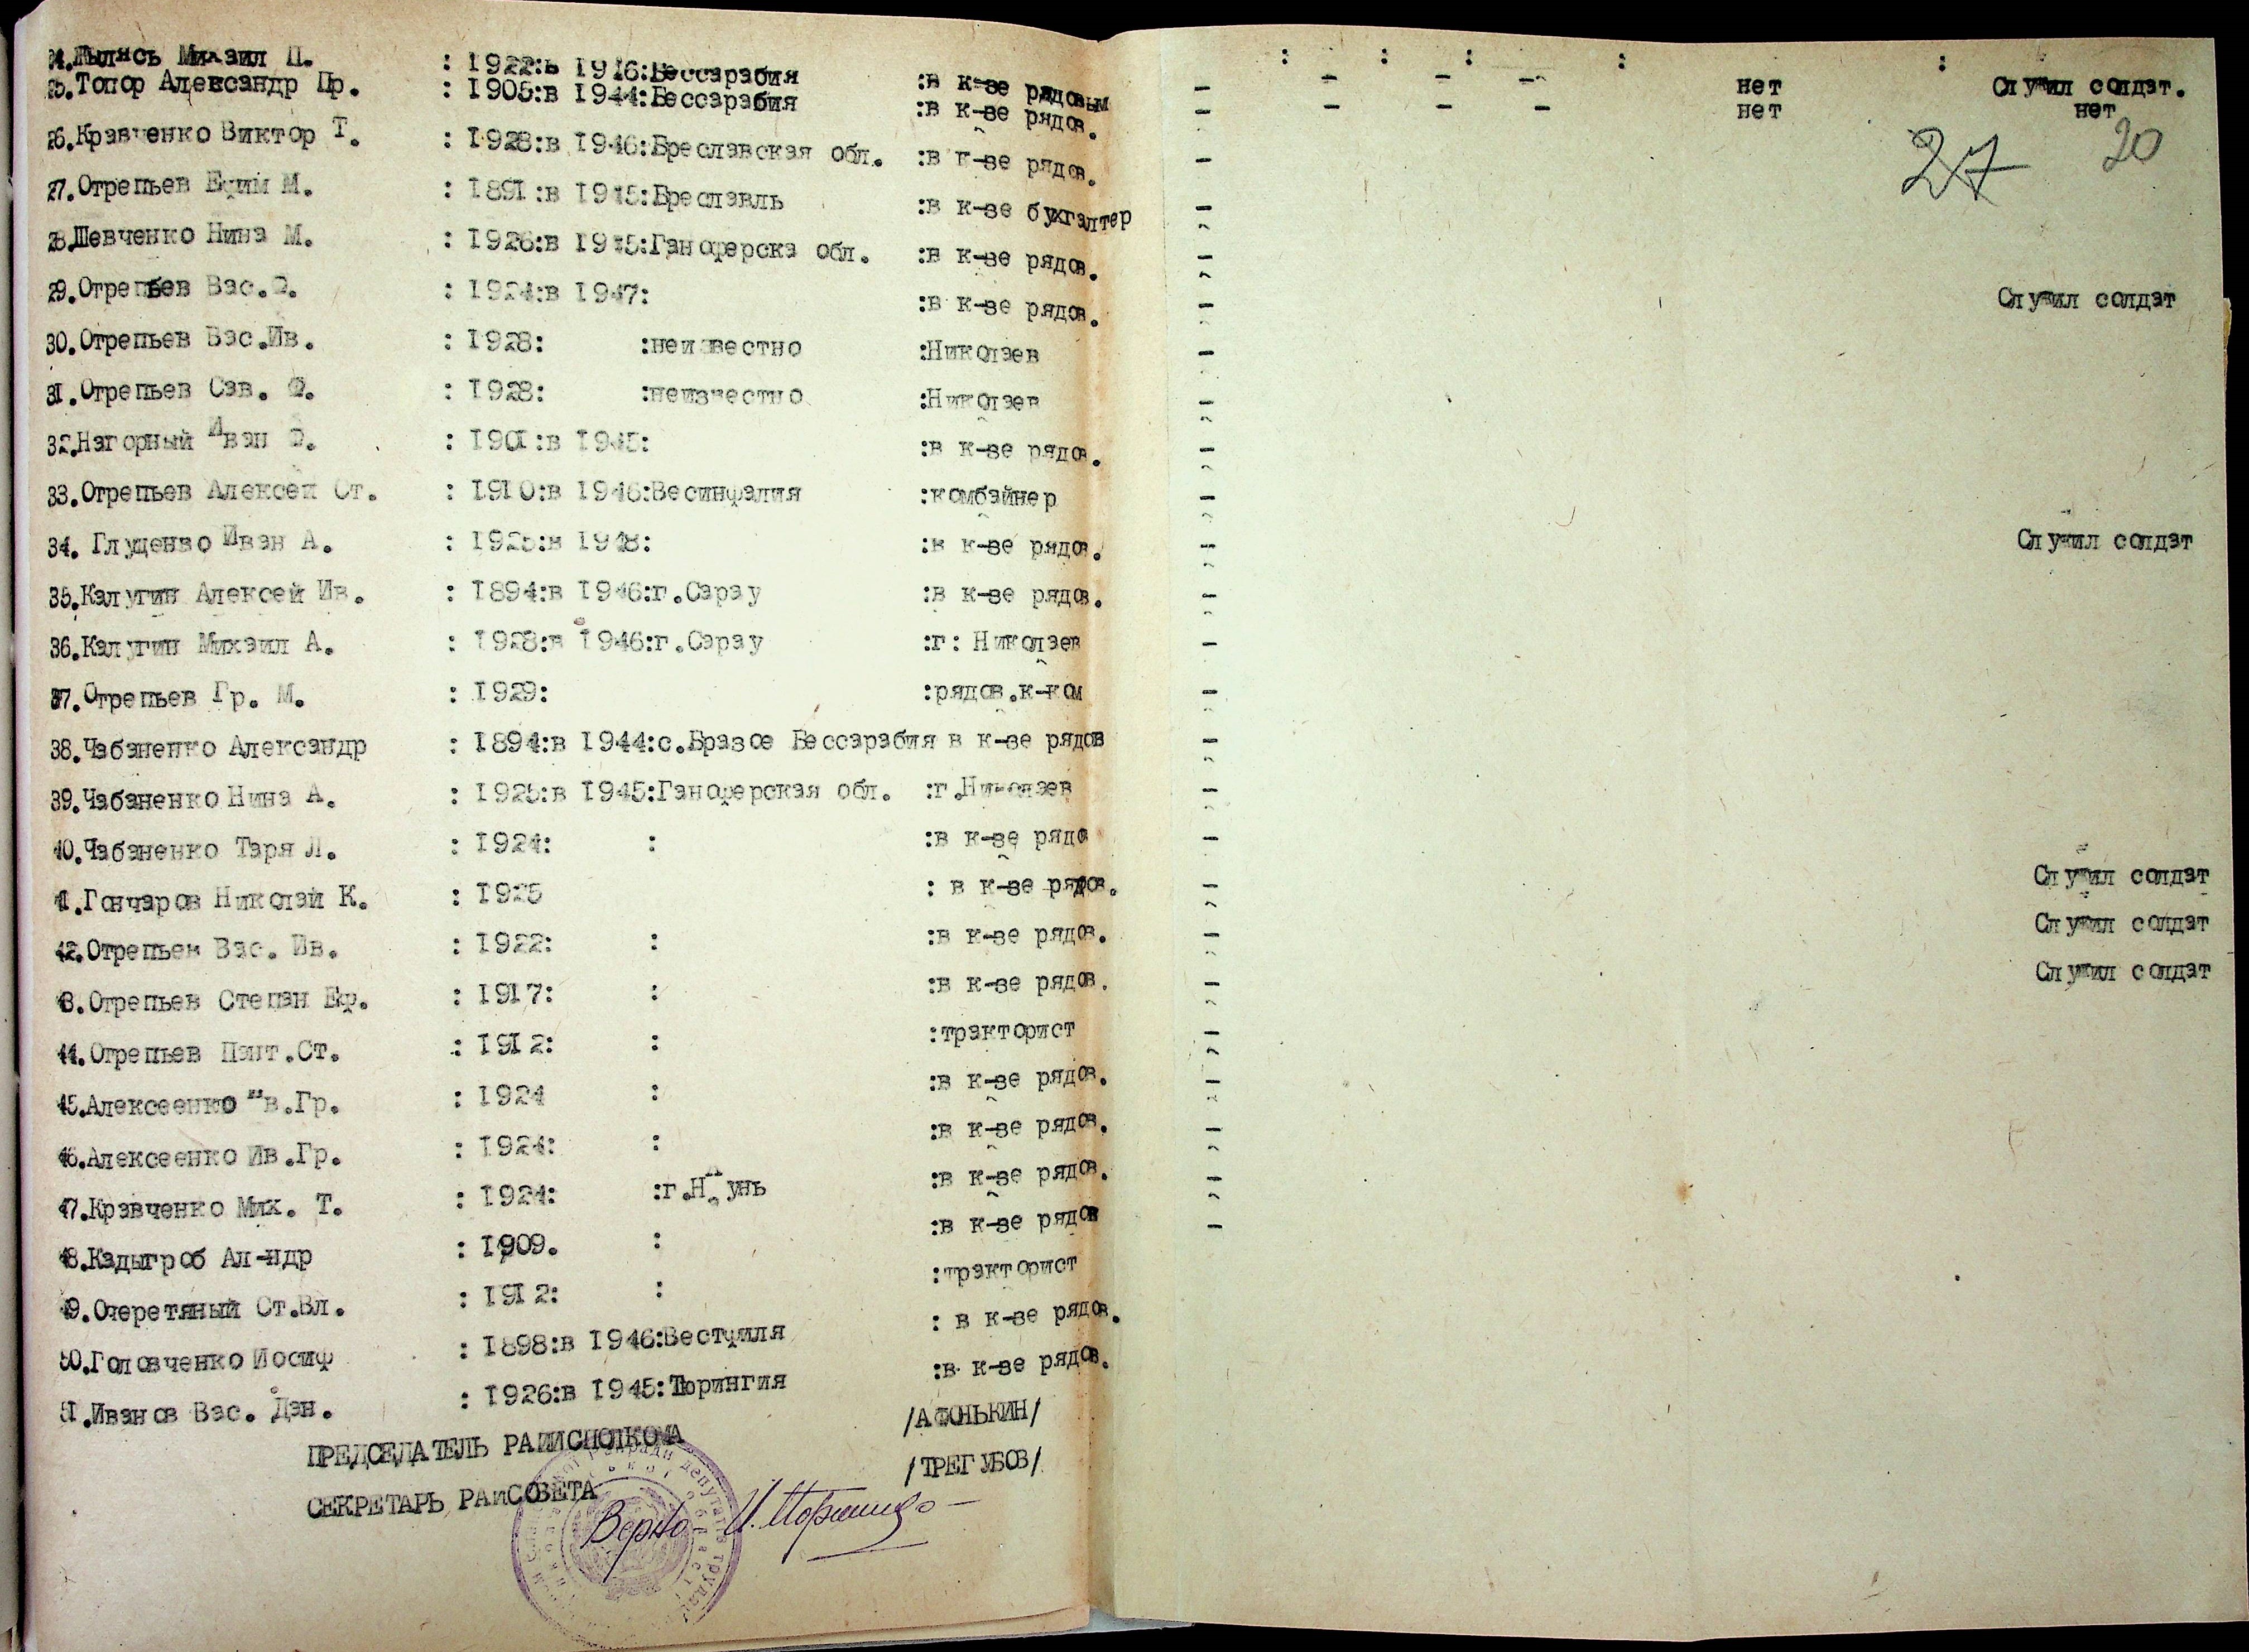 24.Жылясь Михаил П. : 1922:в 1946:Бессарабия :в к-зе рядовым - - - - нет Служил солдат.
25.Топор Александр Пр. : 1905:в 1944:Бессарабия :в к-зе рядов. - - - - нет нет
27 20
26.Кравченко Виктор Т. : 1928:в 1946:Бреславская обл. :в к-зе рядов. -
27.Отрепьев Ефим М. : 1891:в 1945:Бреславль :в к-зе бухгалтер -
28.Шевченко Нина М. : 1926:в 1945:Ганоферска обл. :в к-зе рядов. -
29.Отрепьев Вас.Ф. : 1924:в 1947: :в к-зе рядов. - Служил солдат
30.Отрепьев Вас.Ив. : 1928: :неизвестно :Николаев -
31.Отрепьев Сав. Ф. : 1928: :неизвестно :Николаев -
32.Нагорный Иван Ф. : 1901:в 1945: :в к-зе рядов. -
33.Отрепьев Алексей Ст. : 1910:в 1946:Весинфалия :комбайнер -
34. Глуценво Иван А. : 1925:в 1948: :в к-зе рядов. - Служил солдат
35.Калугин Алексей Ив. : 1894:в 1946:г.Сарау :в к-зе рядов. -
36.Калугин Михаил А. : 1928:в 1946:г.Сарау :г: Николаев -
37.Отрепьев Гр. М. : 1929: :рядов.к-ком -
38.Чабаненко Александр : 1894:в 1944:с.Бразое Бессарабия в к-зе рядов -
39.Чабаненко Нина А. : 1925:в 1945:Ганоферская обл. :г.Николаев -
40.Чабаненко Таря Л. : 1924: : :в к-зе рядо -
41.Гончаров Николай К. : 1925 : в к-зе рядов. - Служил солдат
42.Отрепьем Вас. Ив. : 1922: : :в к-зе рядов. - Служил солдат
43.Отрепьев Степан Еф. : 1917: : :в к-зе рядов. - Служил солдат
44.Отрепьев Пант.Ст. : 1912: : :тракторист -
45.Алексеенко Ив.Гр. : 1924 : :в к-зе рядов. -
46.Алексеенко Ив.Гр. : 1924: : :в к-зе рядов. -
47.Кравченко Мих. Т. : 1924: :г. :в к-зе рядов. -
48.Кадыгроб Ал-ндр : 1909. : :в к-зе рядов -
49.Очеретяный Ст.Вл. : 1912: : :тракторист
50.Головченко Иосиф : 1898:в 1946:Вестфиля : в к-зе рядов.
51.Иванов Вас. Дан. : 1926:в 1945:Тюрингия :в к-зе рядов.
ПРЕДСЕДАТЕЛЬ РАЙИСПОЛКОМА /АФОНЬКИН/
СЕКРЕТАРЬ РАЙСОВЕТА /ТРЕГУБОВ/
Верно